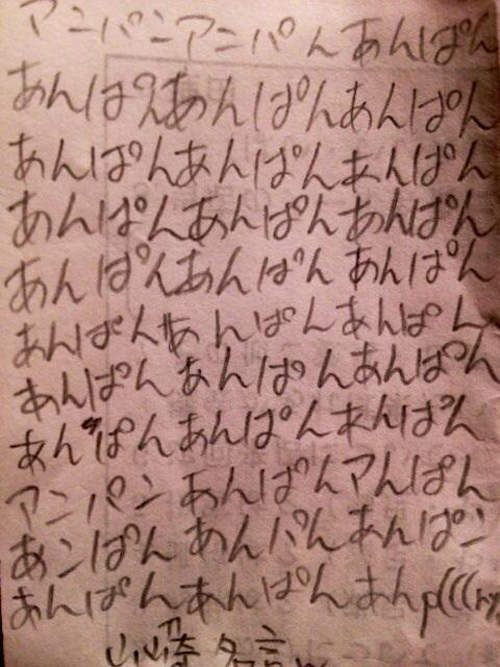 アンパンアニパんあんぱん
あんぱんあんぱんあんぱん
あんぱんあんぱんあんぱん
あんぱんあんぱんあんぱん
あんぱんあんぱんあんぱん
あんぱんあんぱんあんぱん
あんぱんあんぱんあんぱん
あんぱんあんぱんあんぱん
アンパンあんぱんアんぱん
あンぱんあんパんあんぱン
あんぱんあんぱんあんp(((ry